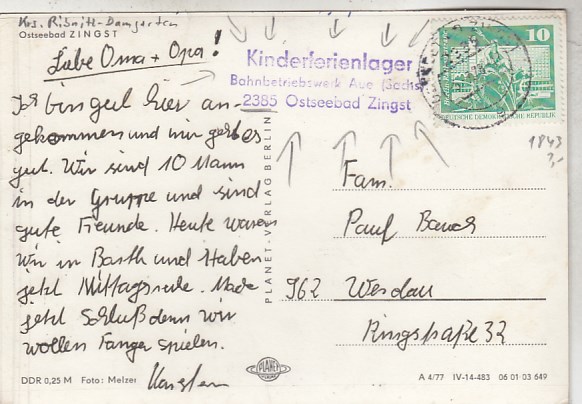 Krs. Ribnitz-Damgarten
Ostseebad ZINGST
Liebe Oma + Opa!
Ich bin gut hier an-
gekommen und mir geht es
gut. Wir sind 10 Mann
in der Gruppe und sind
gute Freunde. Heute waren
wir in Barth und Haben
jetzt Mittagsruhe. Mache
jetzt Schluß denn wir
wollen Fangen spielen.
Karsten
DDR 0,25 M Foto: Melzer
PLANET-VERLAG BERLIN
Kinderferienlager
Bahnbetriebswerk Aue (Sachs)
2385 Ostseebad Zingst
10
DEUTSCHE DEMOKRATISCHE REPUBLIK
1843
3,-
Fam.
Paul Bauch
962 Werdau
Ringstraße 32
PLANET
A 4/77 IV-14-483 06 01 03 649